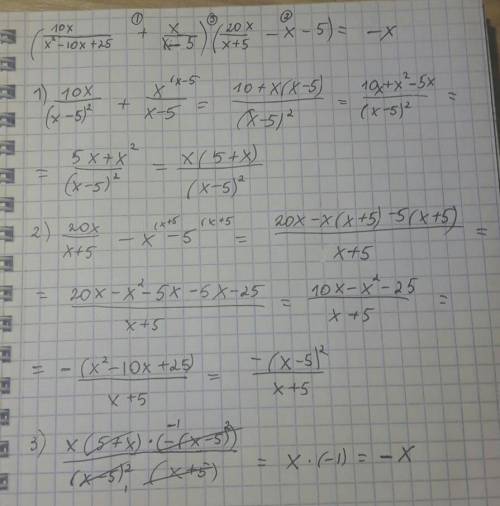 (10x/(x²-10x+25) +① x/(x-5)) ③ (20x/(x+5) -② x - 5) = -x
1) 10x/(x-5)² + x^(x-5/(x-5) = (10+x(x-5))/(x-5)² = (10x+x²-5x)/(x-5)² =
= (5x+x²)/(x-5)² = x(5+x)/(x-5)²
2) 20x/(x+5) - x^(x+5 - 5^(x+5 = (20x-x(x+5)-5(x+5))/(x+5) =
= (20x-x²-5x-5x-25)/(x+5) = (10x-x²-25)/(x+5) =
= -(x²-10x+25)/(x+5) = -(x-5)²/(x+5)
3) x(5+x)·(-(x-5)²)^-1/((x-5)²₁ (x+5)) = x·(-1) = -x